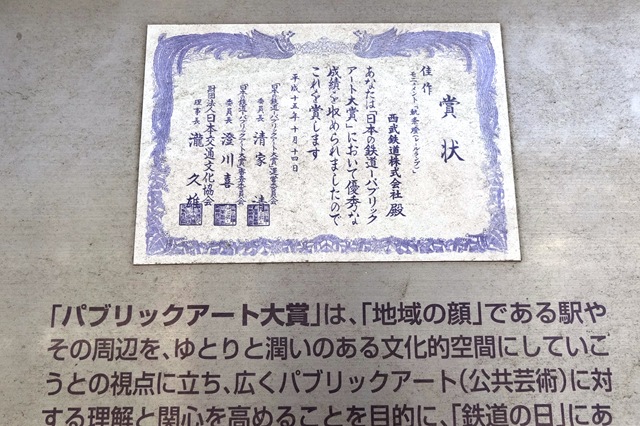 賞状
佳作
西武鉄道株式会社 殿
あなたは「日本の鉄道ーパブリック
アート大賞」において優秀な
成績を収められましたので
これを賞します
平成十五年十月十四日
日本鉄道・パブリックアート大賞運営委員会
委員長 清家 清
日本鉄道・パブリックアート大賞審査委員会
委員長 澄川喜一
財団法人日本交通文化協会
理事長 瀧 久雄
「パブリックアート大賞」は、「地域の顔」である駅や
その周辺を、ゆとりと潤いのある文化的空間にしていこ
うとの視点に立ち、広くパブリックアート(公共芸術)に対
する理解と関心を高めることを目的に、「鉄道の日」にあ